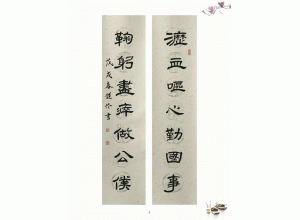 瀝血嘔心勤國事
鞠躬盡瘁做公僕
戊戌春
書